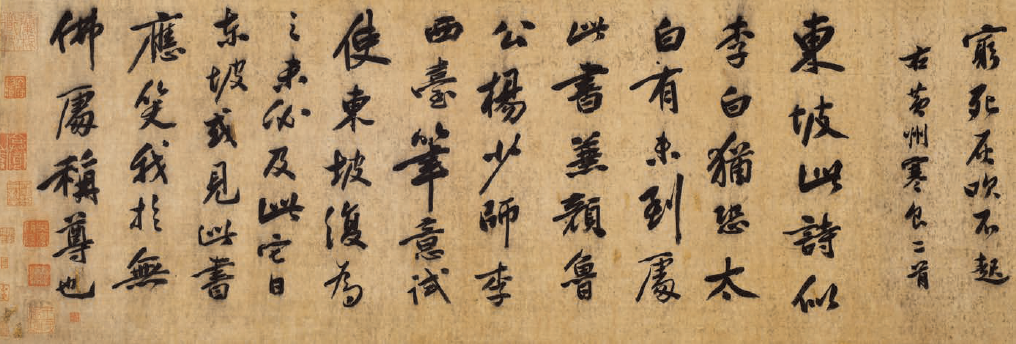 窮死灰吹不起
右黃州寒食二首
東坡此詩似
李白猶恐太
白有未到處
此書兼顏魯
公楊少師李
西臺筆意試
使東坡復為
之未必及此它日
東坡或見此書
應笑我於無
佛處稱尊也